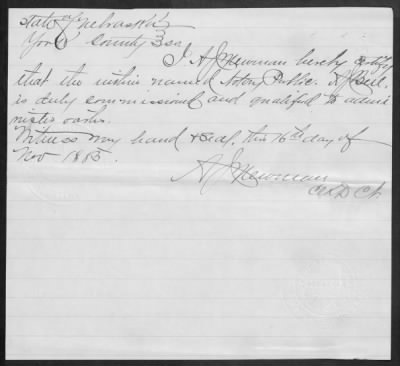 State of Nebraska
York County } ss
I A J Newman hereby certify
that the within named Notary Public
is duly commissioned and qualified to admi
nister oaths.
Witness my hand & Seal, this 16th day of
Nov 1885.
A J Newman
Clk D Ct